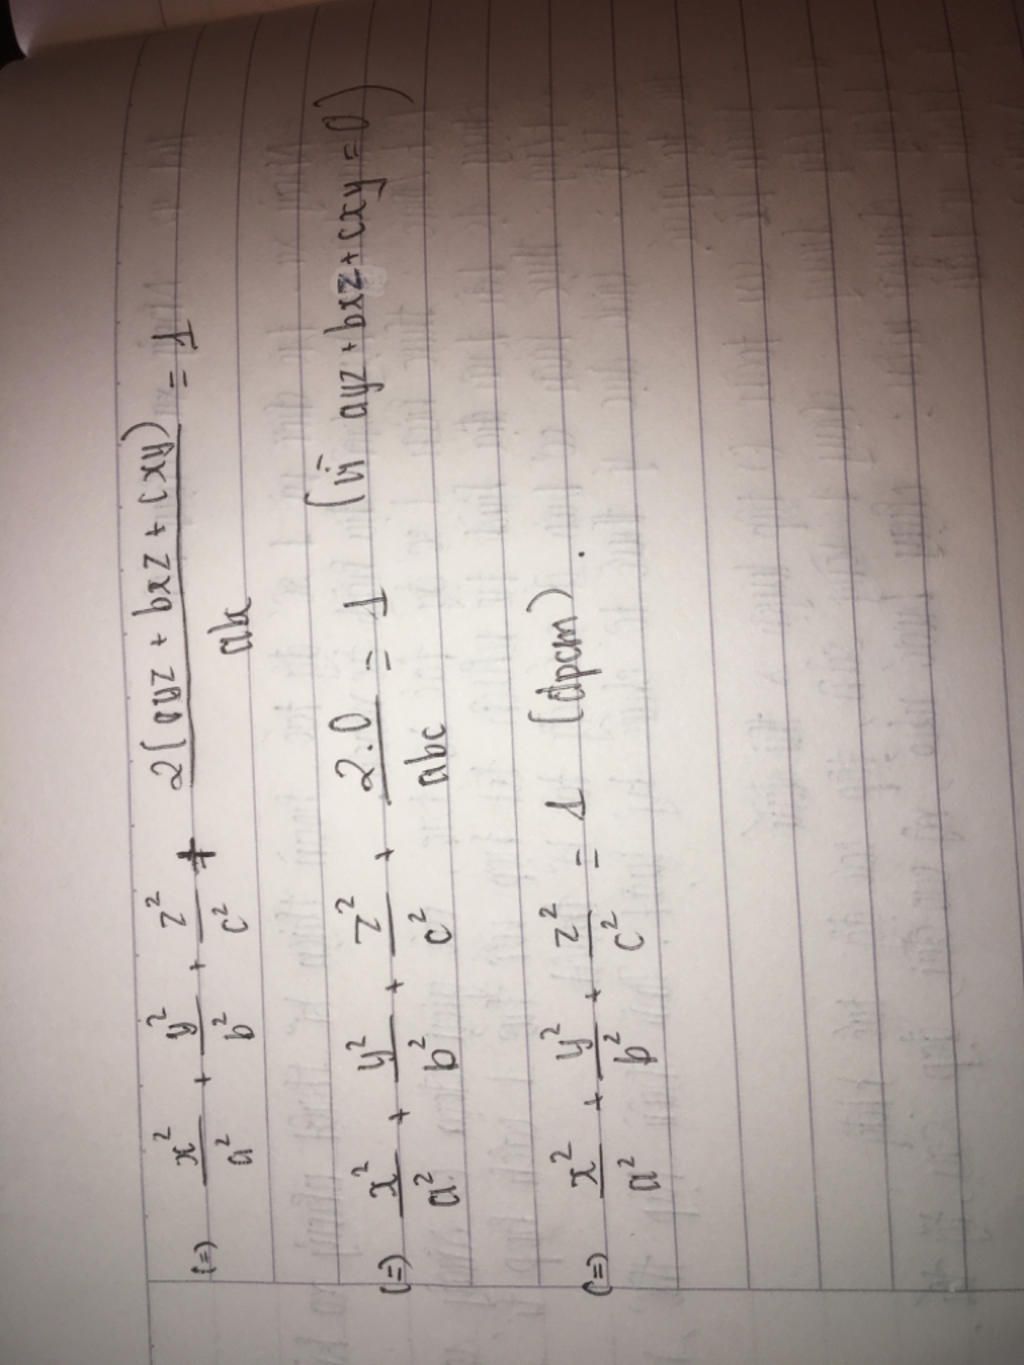 (=) x²/a² + y²/b² + z²/c² + 2(ayz + bxz + cxy)/abc = 1
(=) x²/a² + y²/b² + z²/c² + 2.0/abc = 1 (vì ayz + bxz + cxy = 0)
(=) x²/a² + y²/b² + z²/c² = 1 (dpcm).